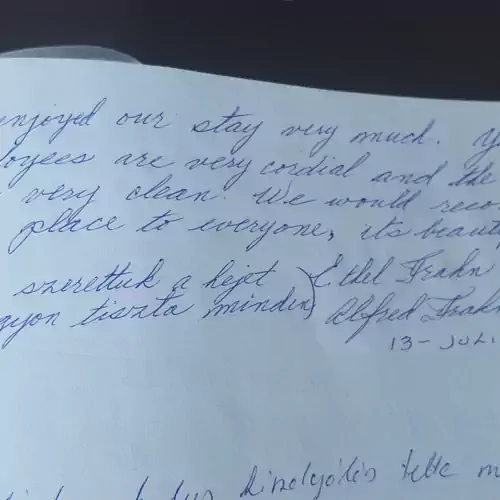 enjoyed our stay very much. Y
loyees are very cordial and the
very clean. We would reco
place to everyone, its beaut
szerettuk a hejet Ethel Frahn
gyon tiszta minden Alfred Frahn
13-JUL.
tette m